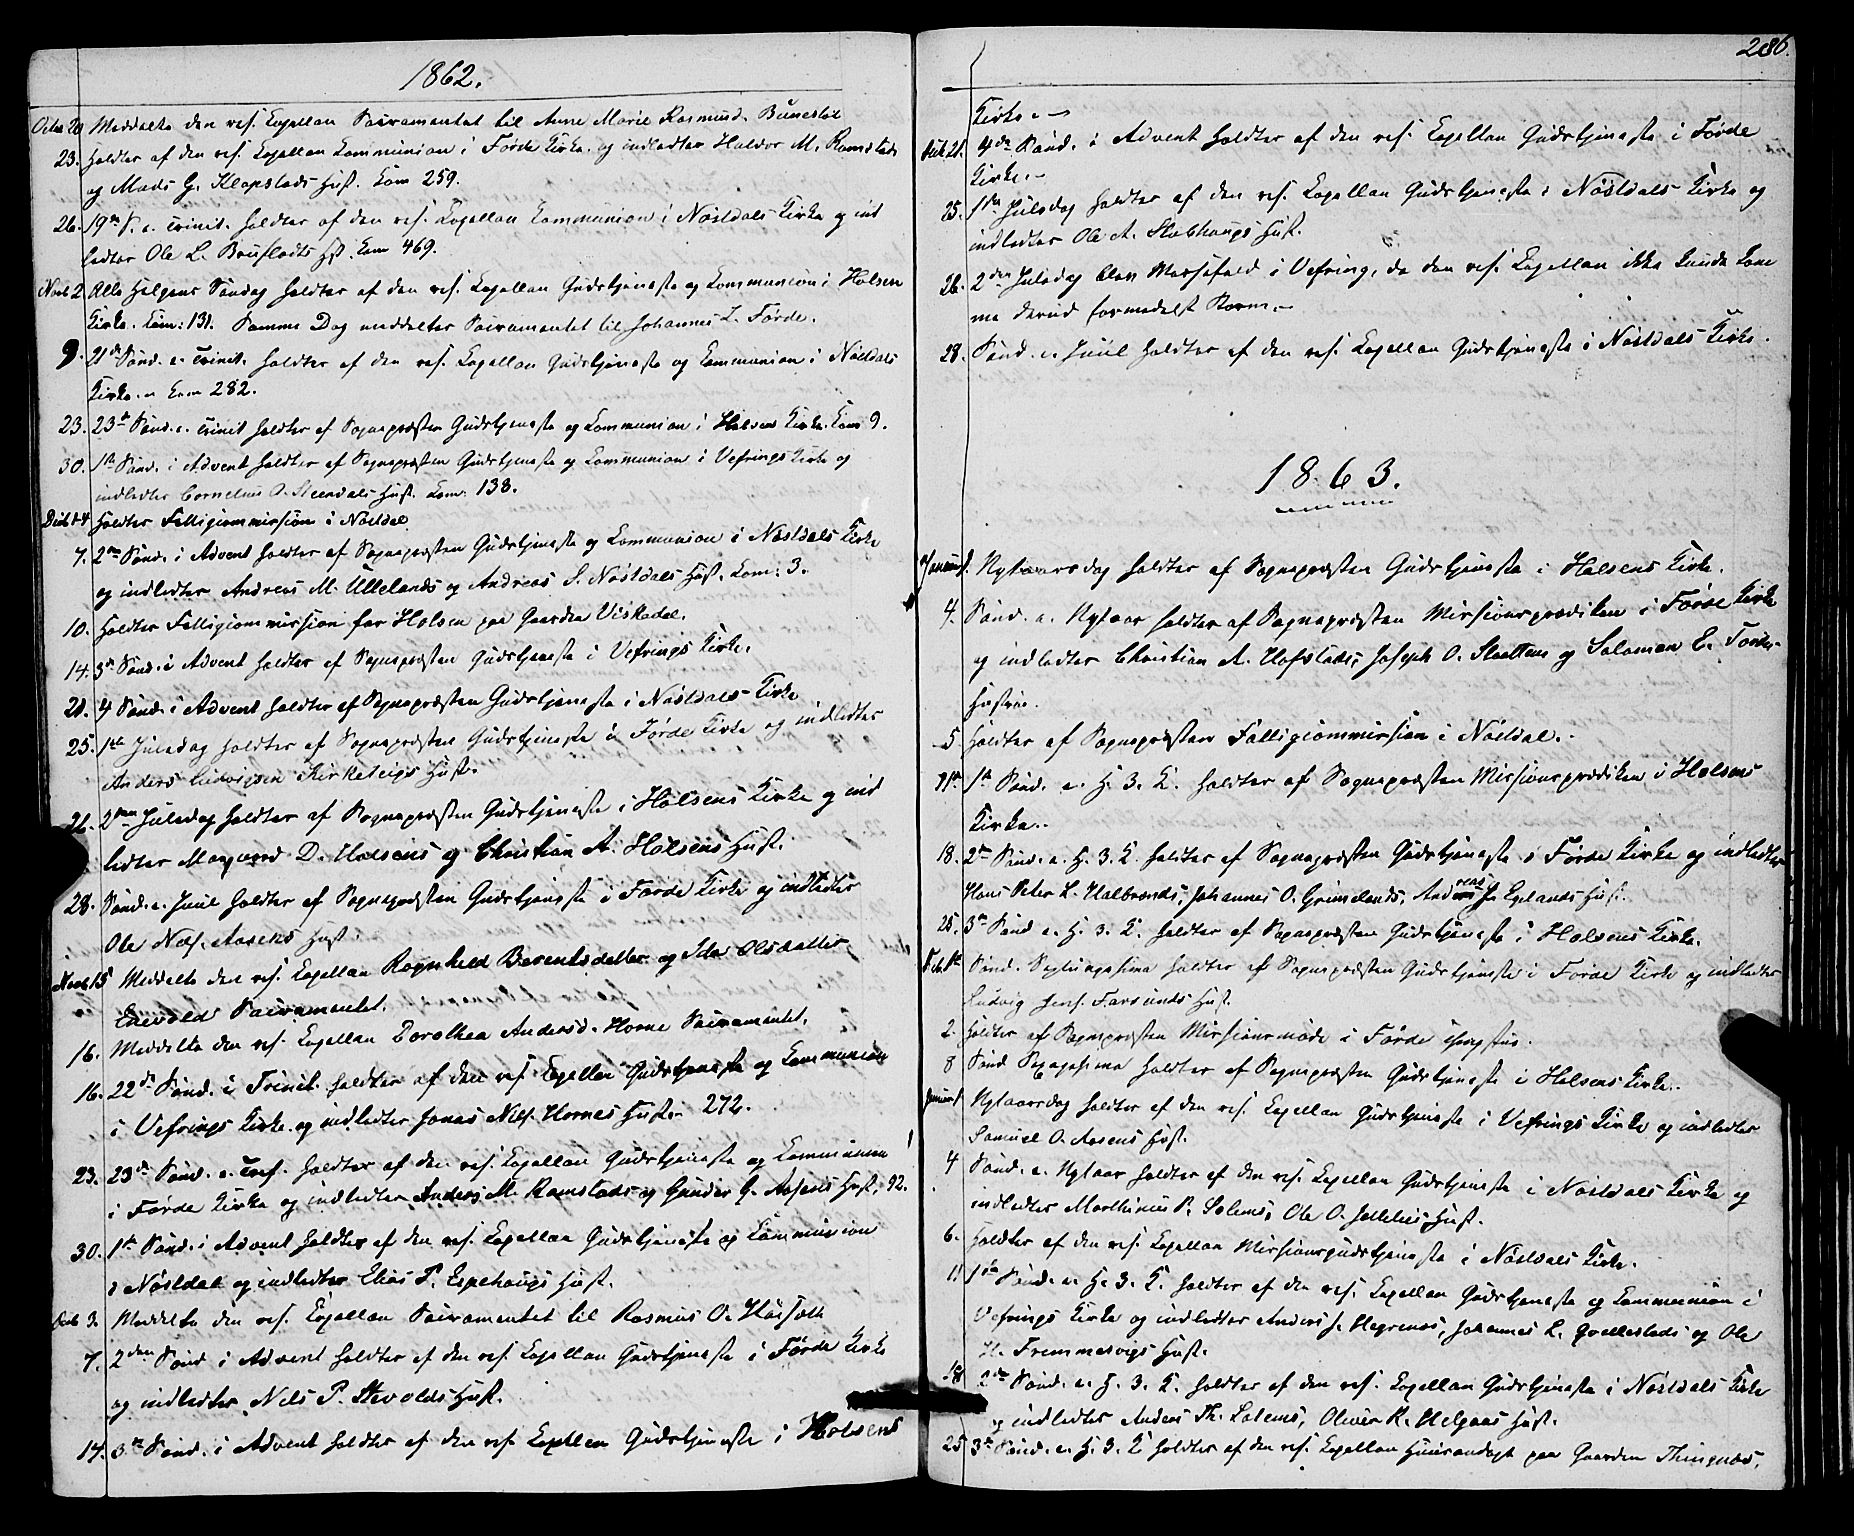 1862.
Octbr 20 Meddelte den res. Capellan Sacramentet til Anne Marie Rasmusd. Bünestol
23. Holdtes af den res. Capellan Communion i Førde Kirke og indledtes Haldor M. Ramstads
og Mads G. Klopstads Hust. Com 259.
26. 19de S. e. Trinit. holdtes af den res. Capellan Communion i Nøstdals Kirke og ind
ledtes Ole L. Brustadts Hst. Com 469.
Novb 2 Alle Helgens Søndag holdtes af den res. Capellan Gudstjeneste og Communion i Holsen
Kirke. Com: 131. Samme Dag meddeltes Sacramentet til Johannes L. Førde.
9. 21de Sønd. e. Trinit. holdtes af den res. Capellan Gudstjeneste og Communion i Nøstdals
Kirke. Com 282.
23. 23de Sønd. e. Trinit holdtes af Sognepræsten Gudstjeneste og Communion i Holsens Kirke. Com 9.
30. 1ste Sønd. i Advent holdtes af Sognepræsten Gudstjeneste og Communion i Vefrings Kirke og
indledtes Cornelius O. Steendals Hust. Com: 138.
Decb 4 Holdtes Fattigcommission i Nøstdal
7. 2den Sønd. i Advent holdtes af Sognepræsten Gudstjeneste og Communion i Nøstdals Kirke
og indledtes Andreas M. Ullelands og Andreas S. Nøstdals Hust. Com: 3.
10. Holdtes Fattigcommission for Holsen paa Gaarden Viskedal.
14. 3de Sønd. i Advent holdtes af Sognepræsten Gudstjeneste i Vefrings Kirke.
21. 4 Sønd. i Advent holdtes af Sognepræsten Gudstjeneste i Nøstdals Kirke
25. 1ste Juledag holdtes af Sognepræsten Gudstjeneste i Førde Kirke og indledtes
Anders Ludvigsen Kirketeigs Hust.
26. 2den Juledag holdtes af Sognepræsten Gudstjeneste i Holsens Kirke og ind
ledtes D. Holsens og Christian A. Holsens Hust.
28. Sønd. e. Juul holdtes af Sognepræsten Gudstjeneste i Førde Kirke og indledtes
Ole Nils. Aasens Hust.
Novb 15 Meddelte den res. Capellan Ragnhild Berentsdatter og Ida Olsdatter
Sacramentet.
16. Meddelte den res. Capellan Dorothea Andersd. Horne Sacramentet.
16. 22de Sønd. e Trinit. holdtes af den res. Capellan Gudstjeneste og Communion
i Vefrings Kirke og indledtes Jonas Nils. Hornes Hust. 272.
23. 23de Sønd. e. Tref. holdtes af den res. Capellan Gudstjeneste og Communion
i Førde Kirke og indledtes Anders M. Ramstads og Gunder G. Hust. 92.
30. 1ste Sønd. i Advent holdtes af den res. Capellan Gudstjeneste og Communion
i Nøstdal og indledtes Elias P. Espehaugs Hust.
Decb 3. Meddelte den res. Capellan Sacramentet til Rasmus O.
7. 2den Sønd. i Advent holdtes af den res. Capellan Gudstjeneste i Førde Kirke
og indledtes Nils P. Hust.
14. 3de Sønd. i Advent holdtes af den res. Capellan Gudstjeneste i Holsens
286.
Kirke.
Decb 21. 4de Sønd. i Advent holdtes af den res. Capellan Gudstjeneste i Førde
Kirke.
25. 1ste Juledag holdtes af den res. Capellan Gudstjeneste i Nøstdals Kirke og
indledtes Ole A. Slobhaugs Hust.
26. 2den Juledag blev Messefald i Vefring, da den res. Capellan ikke kunde kom
me derud formedelst Storm.
28. Sønd. e. Juul holdtes af den res. Capellan Gudstjeneste i Nøstdals Kirke.
1863.
Januar 1. Nytaarsdag holdtes af Sognepræsten Gudstjeneste i Holsens Kirke.
4. Sønd. e. Nytaar holdtes af Sognepræsten Missionsprædiken i Førde Kirke
og indledtes Christian A. Hofstads, Joseph O. Slaattens og Salomon E.
Hustru.
5 Holdtes af Sognepræsten Fattigcommission i Nøstdal.
11te 1ste Sønd. e. H. 3. K. holdtes af Sognepræsten Missionsprædiken i Holsens
Kirke.
18. 2den Sønd. e. H. 3. K. holdtes af Sognepræsten Gudstjeneste i Førde Kirke og indledtes
Hans Peter L. Halbrends, Johannes O. Grimelands, Andreas J. Hust.
25. 3de Sønd. e. H. 3. K. holdtes af Sognepræsten Gudstjeneste i Holsens Kirke.
Feb. 1ste Sønd. Septuagesima holdtes af Sognepræsten Gudstjeneste i Førde Kirke og indledtes
Ludvig Jens. Farsunds Hust.
2. Holdtes af Sognepræsten Missionsmøde i Førde
8 Sønd Sexagesima holdtes af Sognepræsten Gudstjeneste i Holsens Kirke.
Januar 1 Nytaarsdag holdtes af den res. Capellan Gudstjeneste i Vefrings Kirke og indledtes
Samuel O. Aasens Hust.
4 Sønd. e. Nytaar holdtes af den res. Capellan Gudstjeneste i Nøstdals Kirke og
indledtes Marthinus P. Solems, Ole O. Hust.
6. Holdtes af den res. Capellan Missionsgudstjeneste i Nøstdals Kirke.
11 1ste Sønd. e. H. 3. K. holdtes af den res. Capellan Gudstjeneste og Communion i
Vefrings Kirke og indledtes Anders J. Hegrenes, Johannes L. Qvellestads og Ole
H. Fremmersvigs Hust.
18 2den Sønd. e. H. 3. K. holdtes af den res. Capellan Gudstjeneste i Nøstdals Kirke
og indledtes Anders Th. Solems, Oliver R. Helgaas Hust.
25 3de Sønd. e. H. 3. K holdtes af den res. Capellan Huusandagt paa Gaarden Thingnæs.